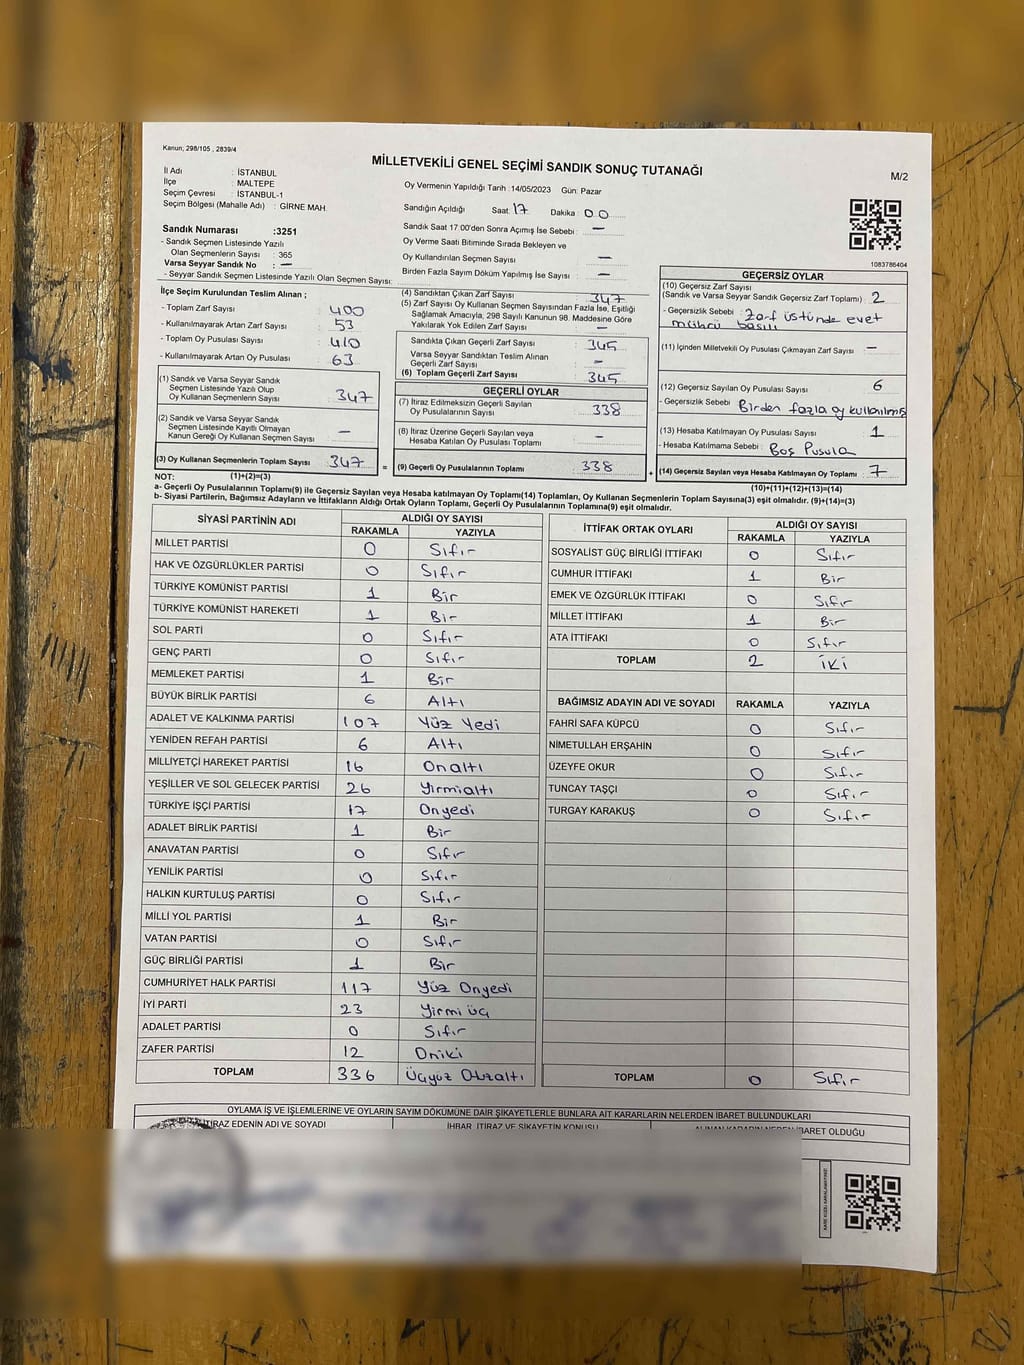 Kanun; 298/105 , 2839/4
MİLLETVEKİLİ GENEL SEÇİMİ SANDIK SONUÇ TUTANAĞI
M/2
İl Adı : İSTANBUL
İlçe : MALTEPE
Seçim Çevresi : İSTANBUL-1
Seçim Bölgesi (Mahalle Adı) : GİRNE MAH.
Oy Vermenin Yapıldığı Tarih :14/05/2023 Gün: Pazar
Sandığın Açıldığı Saat: 17 Dakika : 00
Sandık Saat 17:00'den Sonra Açımış İse Sebebi : —
Oy Verme Saati Bitiminde Sırada Bekleyen ve
Oy Kullandırılan Seçmen Sayısı : —
Birden Fazla Sayım Döküm Yapılmış İse Sayısı : —
1083786404
Sandık Numarası :3251
- Sandık Seçmen Listesinde Yazılı
Olan Seçmenlerin Sayısı : 365
Varsa Seyyar Sandık No : —
- Seyyar Sandık Seçmen Listesinde Yazılı Olan Seçmen Sayısı:
İlçe Seçim Kurulundan Teslim Alınan ;
- Toplam Zarf Sayısı : 400
- Kullanılmayarak Artan Zarf Sayısı : 53
- Toplam Oy Pusulası Sayısı : 410
- Kullanılmayarak Artan Oy Pusulası : 63
(1) Sandık ve Varsa Seyyar Sandık
Seçmen Listesinde Yazılı Olup
Oy Kullanan Seçmenlerin Sayısı : 347
(2) Sandık ve Varsa Seyyar Sandık
Seçmen Listesinde Kayıtlı Olmayan
Kanun Gereği Oy Kullanan Seçmen Sayısı : —
(3) Oy Kullanan Seçmenlerin Toplam Sayısı : 347
(1)+(2)=(3)
(4) Sandıktan Çıkan Zarf Sayısı : 347
(5) Zarf Sayısı Oy Kullanan Seçmen Sayısından Fazla İse, Eşitliği
Sağlamak Amacıyla, 298 Sayılı Kanunun 98. Maddesine Göre
Yakılarak Yok Edilen Zarf Sayısı : —
Sandıkta Çıkan Geçerli Zarf Sayısı : 345
Varsa Seyyar Sandıktan Teslim Alınan
Geçerli Zarf Sayısı : —
(6) Toplam Geçerli Zarf Sayısı : 345
GEÇERLİ OYLAR
(7) İtiraz Edilmeksizin Geçerli Sayılan
Oy Pusulalarının Sayısı : 338
(8) İtiraz Üzerine Geçerli Sayılan veya
Hesaba Katılan Oy Pusulası Toplamı : —
= (9) Geçerli Oy Pusulalarının Toplamı : 338 +
GEÇERSİZ OYLAR
(10) Geçersiz Zarf Sayısı
(Sandık ve Varsa Seyyar Sandık Geçersiz Zarf Toplamı) : 2
- Geçersizlik Sebebi : Zarf üstünde evet
mührü basılı
(11) İçinden Milletvekili Oy Pusulası Çıkmayan Zarf Sayısı : —
(12) Geçersiz Sayılan Oy Pusulası Sayısı : 6
- Geçersizlik Sebebi : Birden fazla oy kullanılmış
(13) Hesaba Katılmayan Oy Pusulası Sayısı : 1
- Hesaba Katılmama Sebebi : Boş Pusula
(14) Geçersiz Sayılan veya Hesaba Katılmayan Oy Toplamı : 7
(10)+(11)+(12)+(13)=(14)
NOT:
a- Geçerli Oy Pusulalarının Toplamı(9) ile Geçersiz Sayılan veya Hesaba katılmayan Oy Toplamı(14) Toplamları, Oy Kullanan Seçmenlerin Toplam Sayısına(3) eşit olmalıdır. (9)+(14)=(3)
b- Siyasi Partilerin, Bağımsız Adayların ve İttifakların Aldığı Ortak Oyların Toplamı, Geçerli Oy Pusulalarının Toplamına(9) eşit olmalıdır.
SİYASİ PARTİNİN ADI ALDIĞI OY SAYISI
RAKAMLA YAZIYLA
MİLLET PARTİSİ 0 Sıfır
HAK VE ÖZGÜRLÜKLER PARTİSİ 0 Sıfır
TÜRKİYE KOMÜNİST PARTİSİ 1 Bir
TÜRKİYE KOMÜNİST HAREKETİ 1 Bir
SOL PARTİ 0 Sıfır
GENÇ PARTİ 0 Sıfır
MEMLEKET PARTİSİ 1 Bir
BÜYÜK BİRLİK PARTİSİ 6 Altı
ADALET VE KALKINMA PARTİSİ 107 Yüz Yedi
YENİDEN REFAH PARTİSİ 6 Altı
MİLLİYETÇİ HAREKET PARTİSİ 16 Onaltı
YEŞİLLER VE SOL GELECEK PARTİSİ 26 Yirmialtı
TÜRKİYE İŞÇİ PARTİSİ 17 Onyedi
ADALET BİRLİK PARTİSİ 1 Bir
ANAVATAN PARTİSİ 0 Sıfır
YENİLİK PARTİSİ 0 Sıfır
HALKIN KURTULUŞ PARTİSİ 0 Sıfır
MİLLİ YOL PARTİSİ 1 Bir
VATAN PARTİSİ 0 Sıfır
GÜÇ BİRLİĞİ PARTİSİ 1 Bir
CUMHURİYET HALK PARTİSİ 117 Yüz Onyedi
İYİ PARTİ 23 Yirmi üç
ADALET PARTİSİ 0 Sıfır
ZAFER PARTİSİ 12 Oniki
TOPLAM 336 Üçyüz Otuzaltı
İTTİFAK ORTAK OYLARI ALDIĞI OY SAYISI
RAKAMLA YAZIYLA
SOSYALİST GÜÇ BİRLİĞİ İTTİFAKI 0 Sıfır
CUMHUR İTTİFAKI 1 Bir
EMEK VE ÖZGÜRLÜK İTTİFAKI 0 Sıfır
MİLLET İTTİFAKI 1 Bir
ATA İTTİFAKI 0 Sıfır
TOPLAM 2 İKİ
BAĞIMSIZ ADAYIN ADI VE SOYADI RAKAMLA YAZIYLA
FAHRİ SAFA KÜPCÜ 0 Sıfır
NİMETULLAH ERŞAHİN 0 Sıfır
ÜZEYFE OKUR 0 Sıfır
TUNCAY TAŞÇI 0 Sıfır
TURGAY KARAKUŞ 0 Sıfır
TOPLAM 0 Sıfır
OYLAMA İŞ VE İŞLEMLERİNE VE OYLARIN SAYIM DÖKÜMÜNE DAİR ŞİKAYETLERLE BUNLARA AİT KARARLARIN NELERDEN İBARET BULUNDUKLARI
İTİRAZ EDENİN ADI VE SOYADI İHBAR, İTİRAZ VE ŞİKAYETİN KONUSU ALINAN KARARIN NEDEN İBARET OLDUĞU